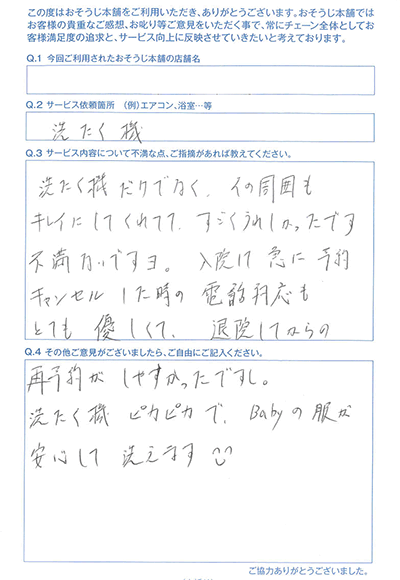 この度はおそうじ本舗をご利用いただき、ありがとうございます。おそうじ本舗では
お客様の貴重なご感想、お叱り等ご意見をいただく事で、常にチェーン全体としてお
客様満足度の追求と、サービス向上に反映させていきたいと考えております。
Q.1 今回ご利用されたおそうじ本舗の店舗名
Q.2 サービス依頼箇所 (例)エアコン、浴室…等
洗たく機
Q.3 サービス内容について不満な点、ご指摘があれば教えてください。
洗たく機だけでなく、その周囲も
キレイにしてくれてて、すごくうれしかったです
不満ないですヨ。入院け 急に予約
キャンセルした時の電話対応も
とても優しくて、退院してからの
Q.4 その他ご意見がございましたら、ご自由にご記入ください。
再予約がしやすかったですし。
洗たく機ピカピカで、Babyの服が
安心して洗えます
ご協力ありがとうございました。